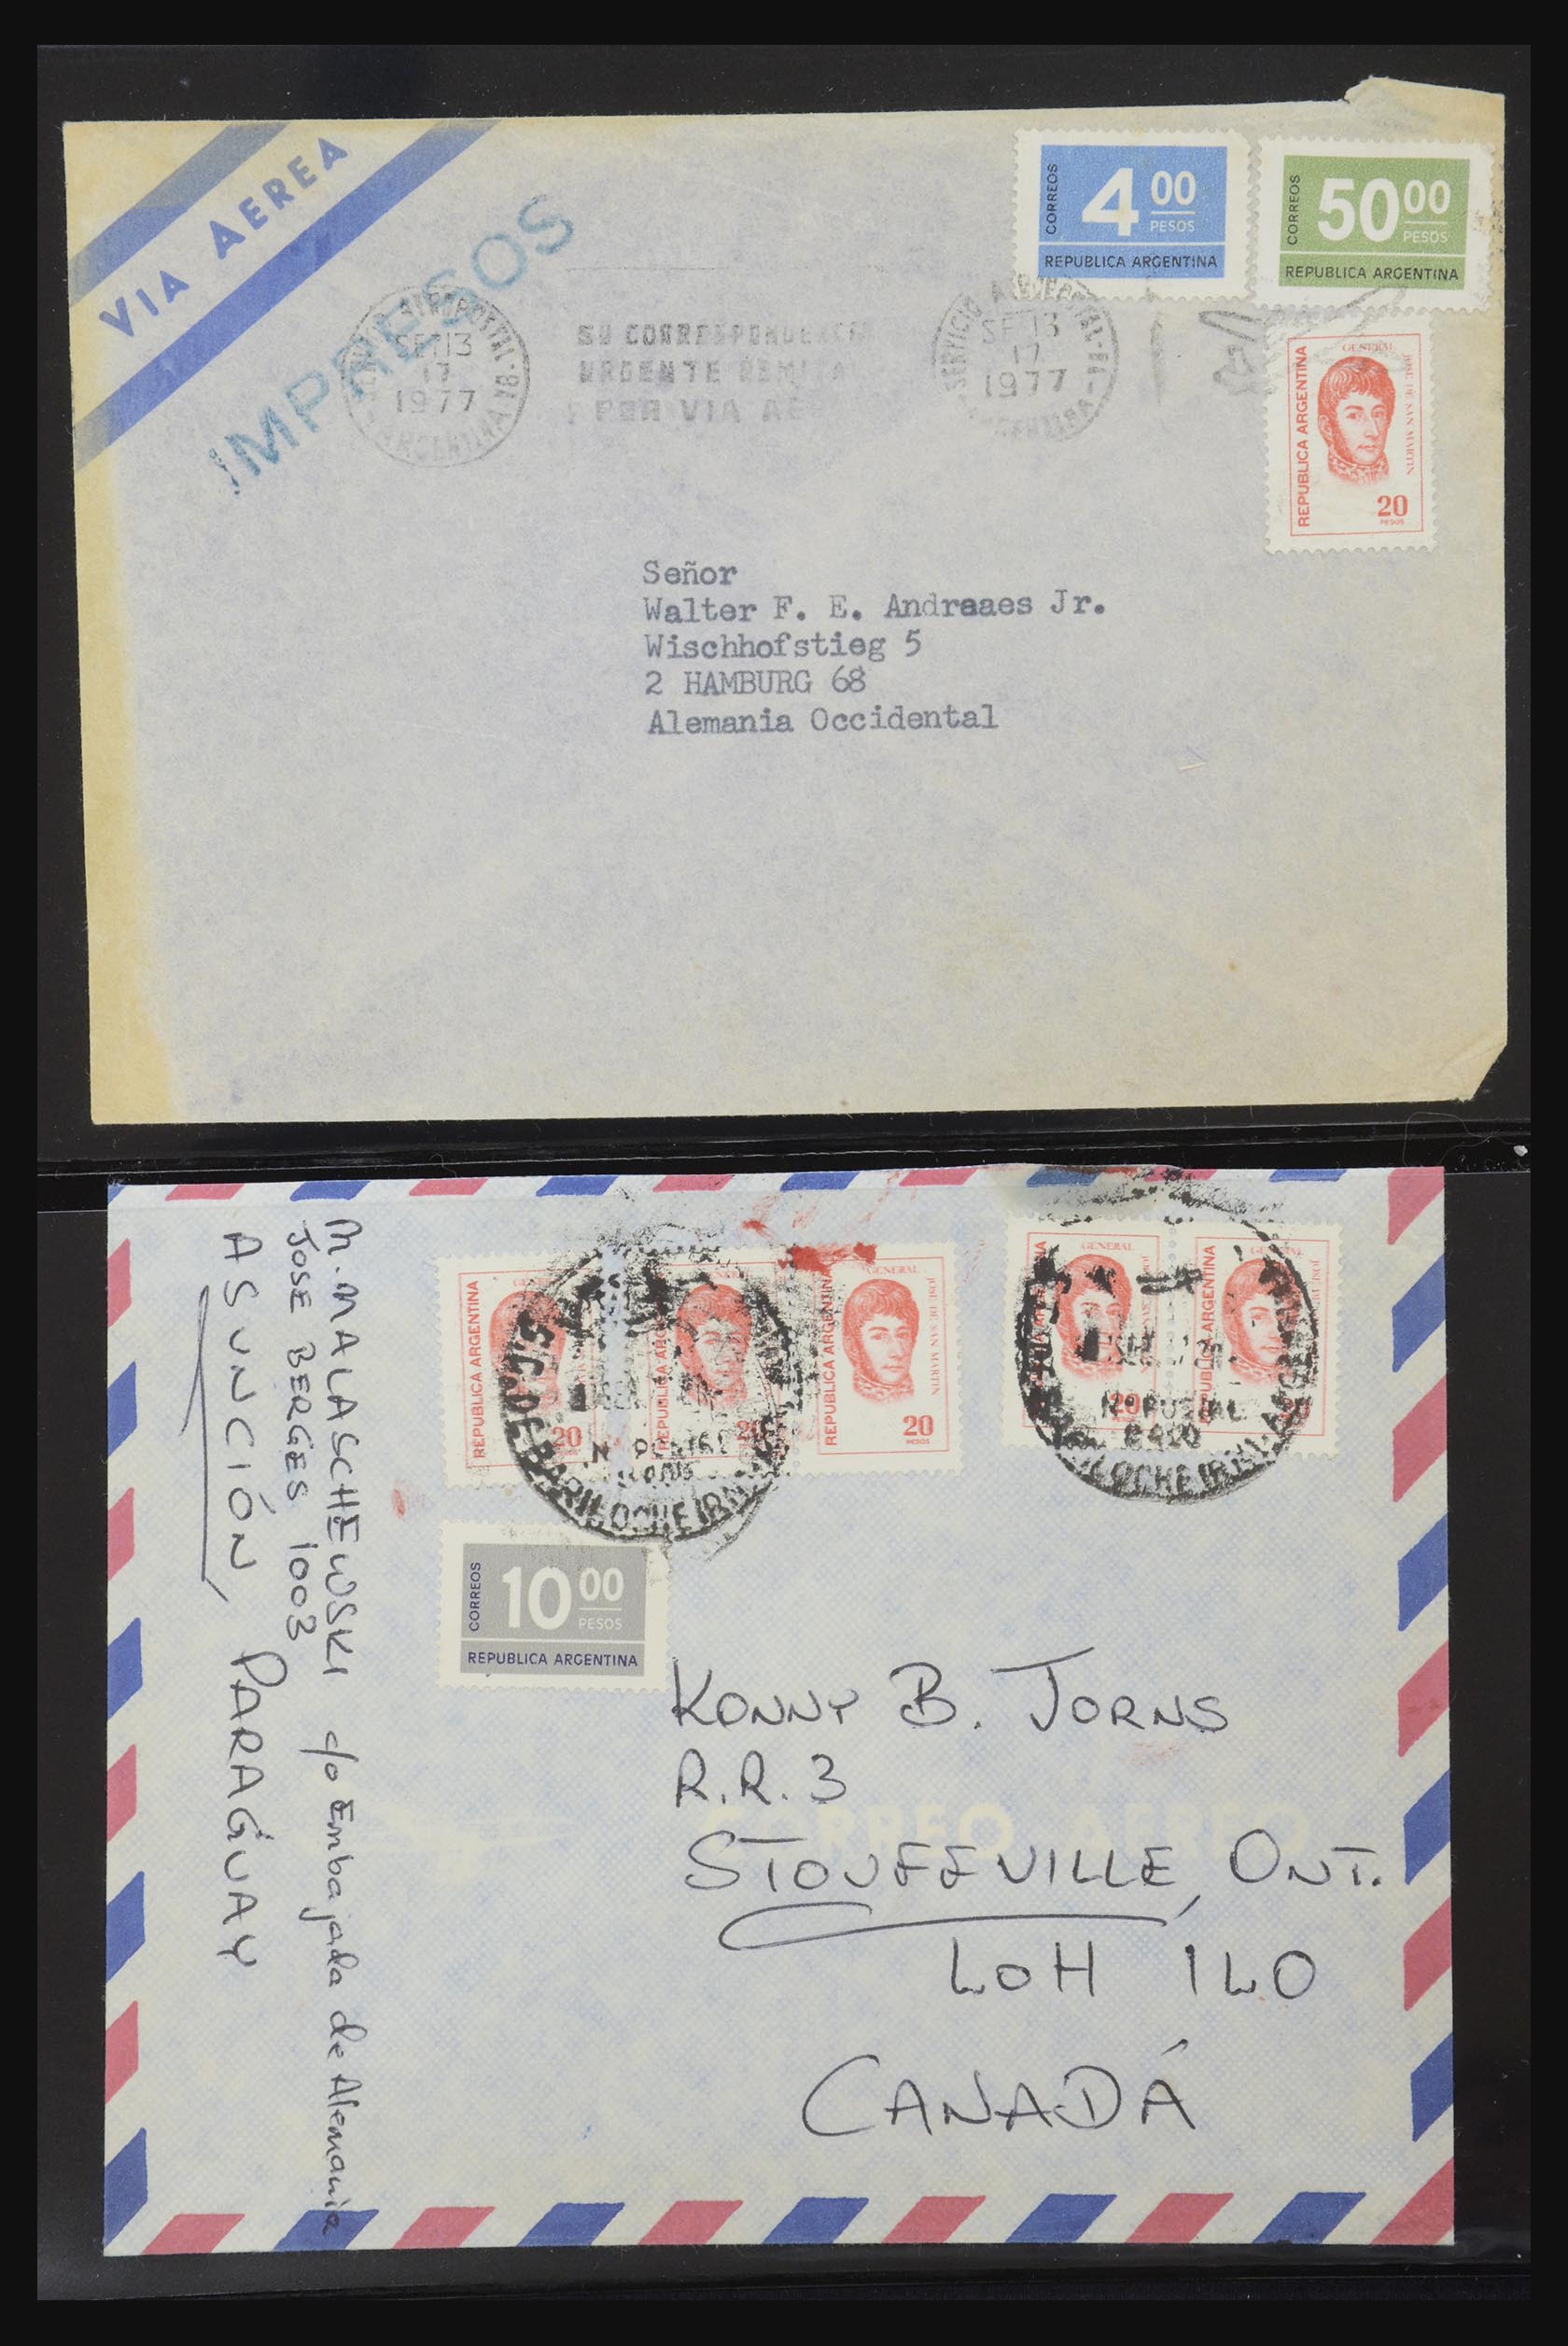 VIA AEREA
IMPRESOS
CORREOS
4 00
PESOS
REPUBLICA ARGENTINA
CORREOS
50 00
PESOS
REPUBLICA ARGENTINA
SERVICIO AEROPOSTAL
SET 13
17
1977
ARGENTINA
SU CORRESPONDENCIA
URGENTE REMITA
POR VIA AE
SERVICIO AEROPOSTAL
SET 13
17
1977
ARGENTINA
REPUBLICA ARGENTINA
GENERAL
JOSE DE SAN MARTIN
20
PESOS
Señor
Walter F. E. Andreaes Jr.
Wischhofstieg 5
2 HAMBURG 68
Alemania Occidental
M. MALASCHEWSKI c/o Embajada de Alemania
JOSE BERGES 1003
ASUNCIÓN, PARAGUAY
REPUBLICA ARGENTINA
20
REPUBLICA ARG
20
REPUBLICA ARGENTINA
GENERAL
JOSE DE SAN MARTIN
20
PESOS
GENERAL
20
REPUBLICA ARGENTINA
GENERAL
S.C. DE BARILOCHE (R.N.
CORREOS
10 00
PESOS
REPUBLICA ARGENTINA
CORREO AEREO
KONNY B. JORNS
R.R.3
STOUFFVILLE, ONT.
LOH 1LO
CANADÁ